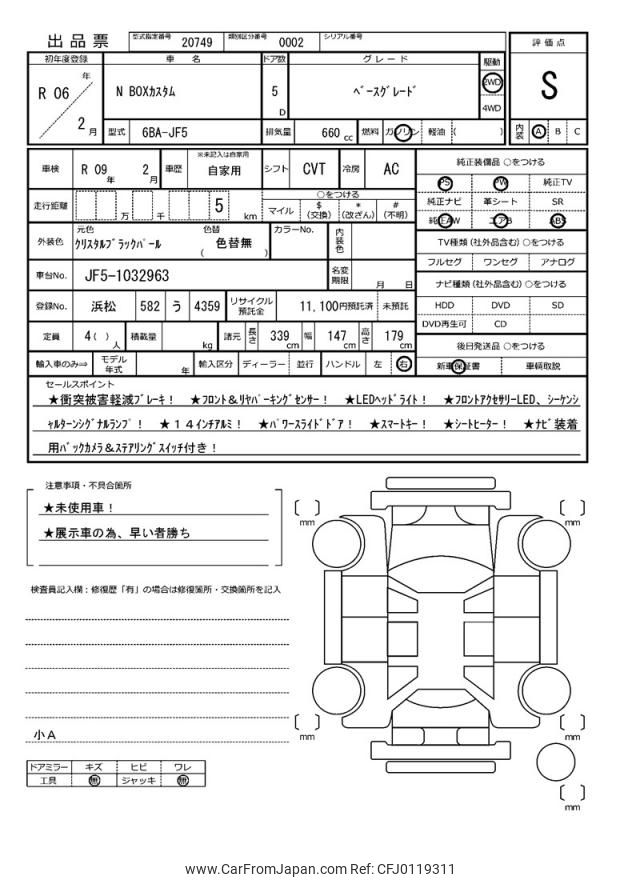 出品票 型式指定番号 20749 類別区分番号 0002 シリアル番号
初年度登録 車 名 ドア数 グレード 駆動 評価点
R 06 年 2 月 N BOXカスタム 5 D ベースグレード 2WD 4WD S
型式 6BA-JF5 排気量 660 cc 燃料 ガソリン 軽油 ( ) 内装 A B C
車検 R 09 年 2 月 車歴 ※未記入は自家用 自家用 シフト CVT 冷房 AC 純正装備品 ○をつける
PS PW 純正TV
走行距離 万 千 5 km ○をつける 純正ナビ 革シート SR
マイル $ (交換) * (改ざん) # (不明) 純正AW エアB ABS
外装色 元色 クリスタルブラックパール 色替 ( 色替無 ) カラーNo. 内装色 TV種類 (社外品含む) ○をつける
フルセグ ワンセグ アナログ
車台No. JF5-1032963 名変期限 月 日 ナビ種類 (社外品含む) ○をつける
登録No. 浜松 582 う 4359 リサイクル預託金 11,100円預託済 未預託 HDD DVD SD
DVD再生可 CD
定員 4( ) 人 積載量 kg 諸元 長さ 339 cm 幅 147 cm 高さ 179 cm 後日発送品 ○をつける
輸入車のみ⇒ モデル年式 年 輸入区分 ディーラー 並行 ハンドル 左 右 新車保証書 車輌取説
セールスポイント
★衝突被害軽減ブレーキ! ★フロント&リヤパーキングセンサー! ★LEDヘッドライト! ★フロントアクセサリーLED、シーケンシ
ャルターンシグナルランプ! ★14インチアルミ! ★パワースライドドア! ★スマートキー! ★シートヒーター! ★ナビ装着
用バックカメラ&ステアリングスイッチ付き!
注意事項・不具合箇所
★未使用車!
★展示車の為、早い者勝ち
検査員記入欄:修復歴「有」の場合は修復箇所・交換箇所を記入
小A
ドアミラー キズ ヒビ ワレ
工具 無 ジャッキ 無
[ ] mm
[ ] mm
[ ] mm
[ ] mm
[ ] mm
www.CarFromJapan.com Ref: CFJ0119311